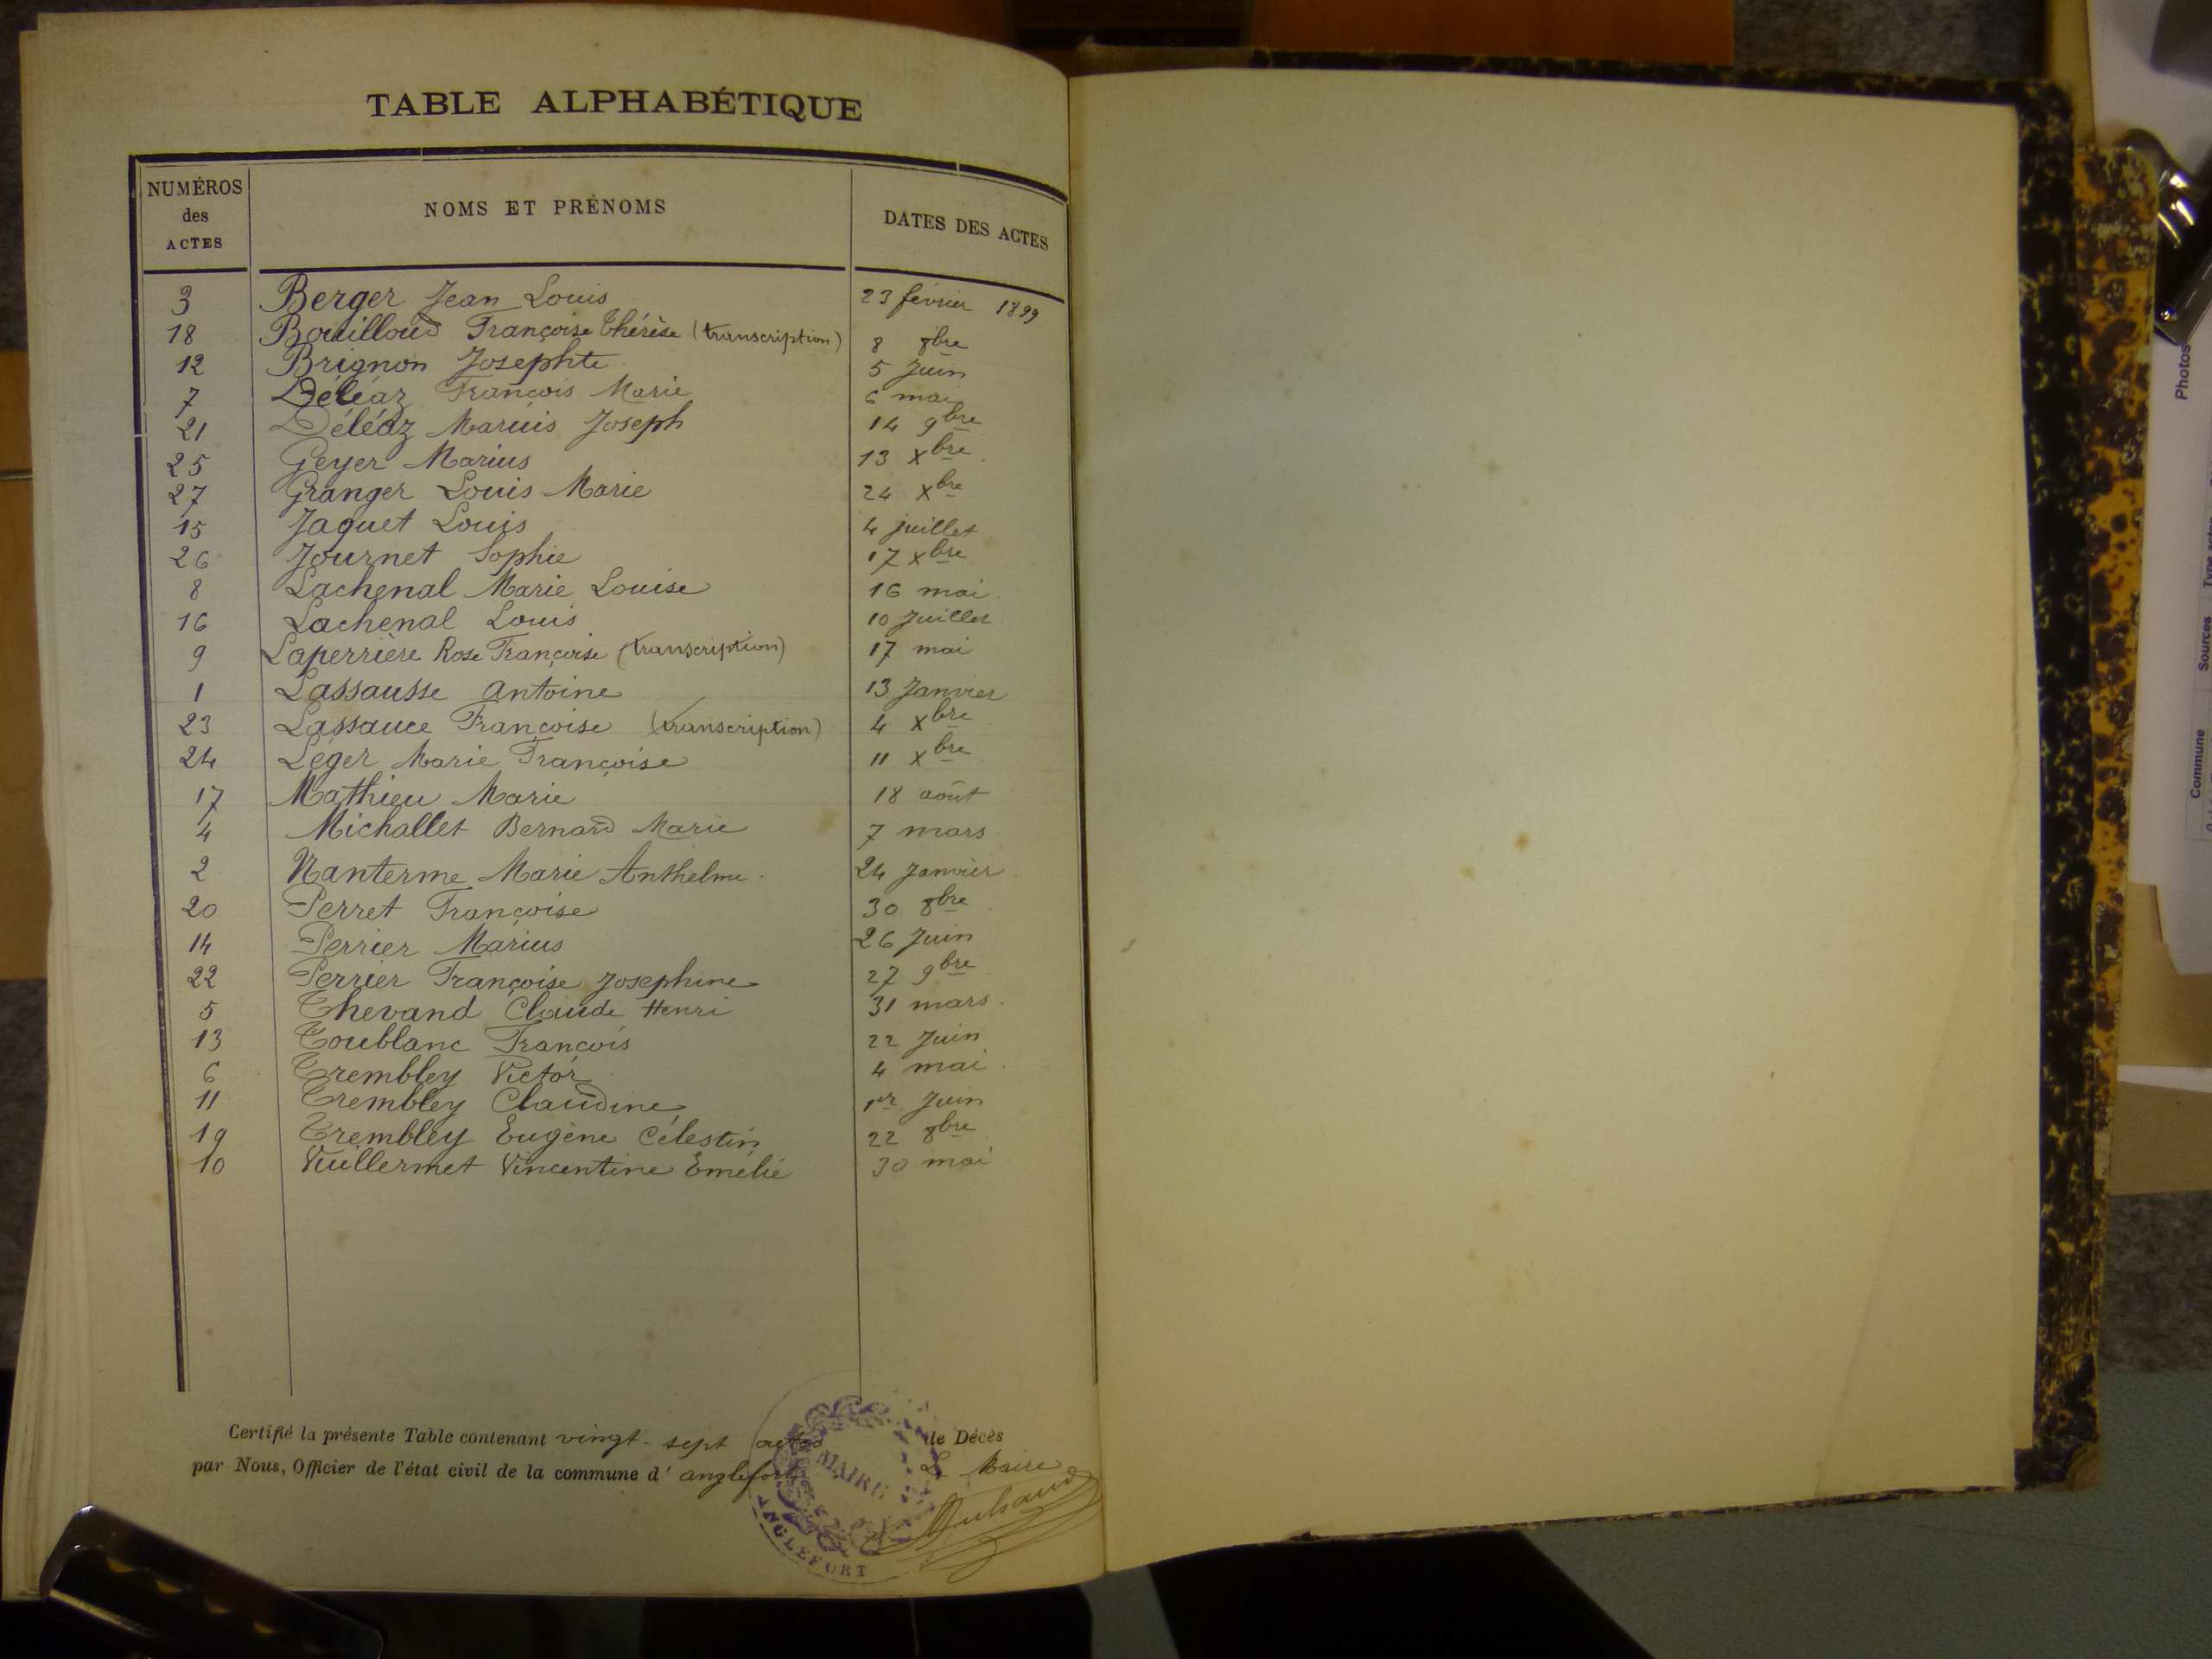 TABLE ALPHABÉTIQUE
NUMÉROS des ACTES NOMS ET PRÉNOMS DATES DES ACTES
3 Berger Jean Louis 23 février 1899
18 Bouilloud Françoise Thérèse (transcription) 8 8bre
12 Brignon Josephte 5 Juin
7 Déléaz François Marie 6 mai
21 Déléaz Marius Joseph 14 9bre
25 Geyer Marius 13 Xbre
27 Granger Louis Marie 24 Xbre
15 Jaquet Louis 4 juillet
26 Journet Sophie 17 Xbre
8 Lachenal Marie Louise 16 mai
16 Lachenal Louis 10 Juillet
9 Laperrière Rose Françoise (transcription) 17 mai
1 Lassausse Antoine 13 Janvier
23 Lassauce Françoise (transcription) 4 Xbre
24 Léger Marie Françoise 11 Xbre
17 Mathieu Marie 18 août
4 Michallet Bernard Marie 7 mars
2 Nanterme Marie Anthelme 24 Janvier
20 Perret Françoise 30 8bre
14 Perrier Marius 26 Juin
22 Perrier Françoise Josephine 27 9bre
5 Thevand Claude Henri 31 mars
13 Toublanc François 22 Juin
6 Trembley Victor 4 mai
11 Trembley Claudine 1er Juin
19 Trembley Eugène Célestin 22 8bre
10 Vuillermet Vincentine Emélie 30 mai
Certifié la présente Table contenant vingt-sept actes de Décès
par Nous, Officier de l'état civil de la commune d'anglefort
Le Maire
MAIRIE
ANGLEFORT
Photos
Type actes
Sources
Commune